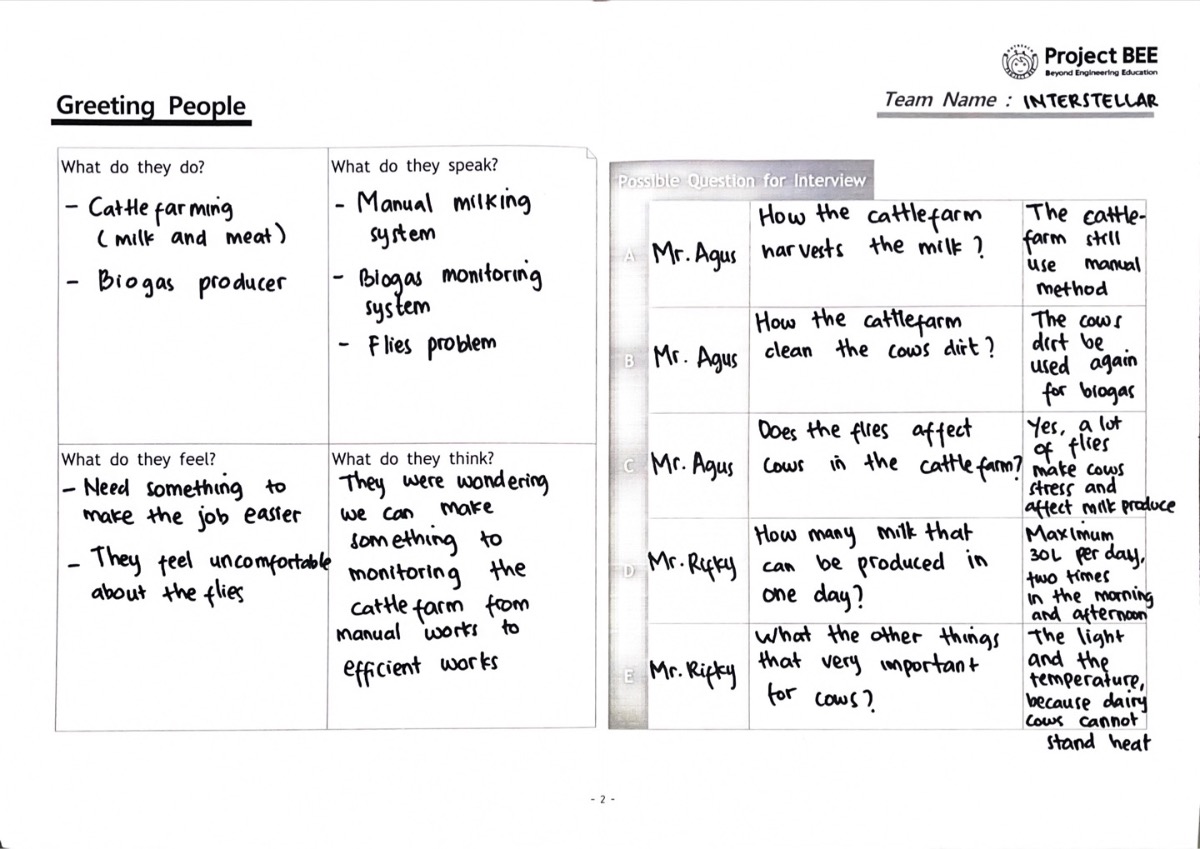 Project BEE
Beyond Engineering Education
Greeting People
Team Name : INTERSTELLAR
What do they do?
- Cattle farming
( milk and meat )
- Biogas producer
What do they speak?
- Manual milking
system
- Biogas monitoring
system
- Flies problem
What do they feel?
- Need something to
make the job easier
- They feel uncomfortable
about the flies
What do they think?
They were wondering
we can make
something to
monitoring the
cattle farm from
manual works to
efficient works
Possible Question for Interview
A
Mr. Agus
How the cattlefarm
harvests the milk ?
The cattle-
farm still
use manual
method
B
Mr. Agus
How the cattlefarm
clean the cows dirt ?
The cows
dirt be
used again
for biogas
C
Mr. Agus
Does the flies affect
cows in the cattle farm?
Yes, a lot
of flies
make cows
stress and
affect milk produce
D
Mr. Rifky
How many milk that
can be produced in
one day?
Maximum
30L per day,
two times
in the morning
and afternoon
E
Mr. Rifky
What the other things
that very important
for cows?
The light
and the
temperature,
because dairy
cows cannot
stand heat
- 2 -